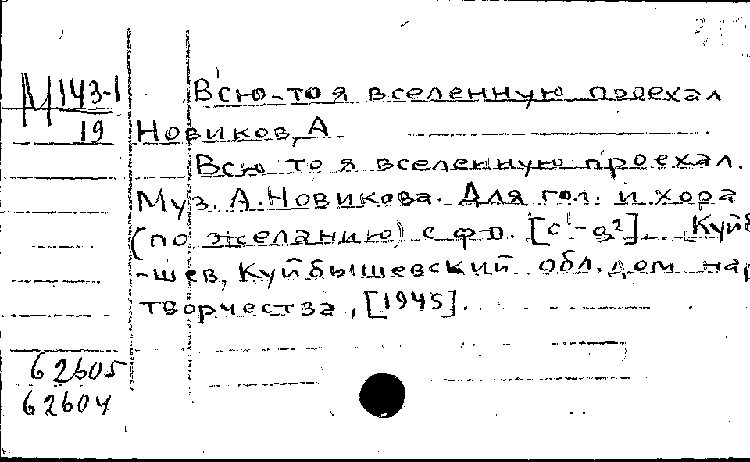 М 143-1
19
Всю-то я вселенную проехал
Новиков, А
Всю то я вселенную проехал.
Муз. А. Новикова. Для гол. и хора
(по желанию) с фп. [c¹-g²]. Куйб
-шев, Куйбышевский обл. дом нар
творчества, [1945].
62605
62604